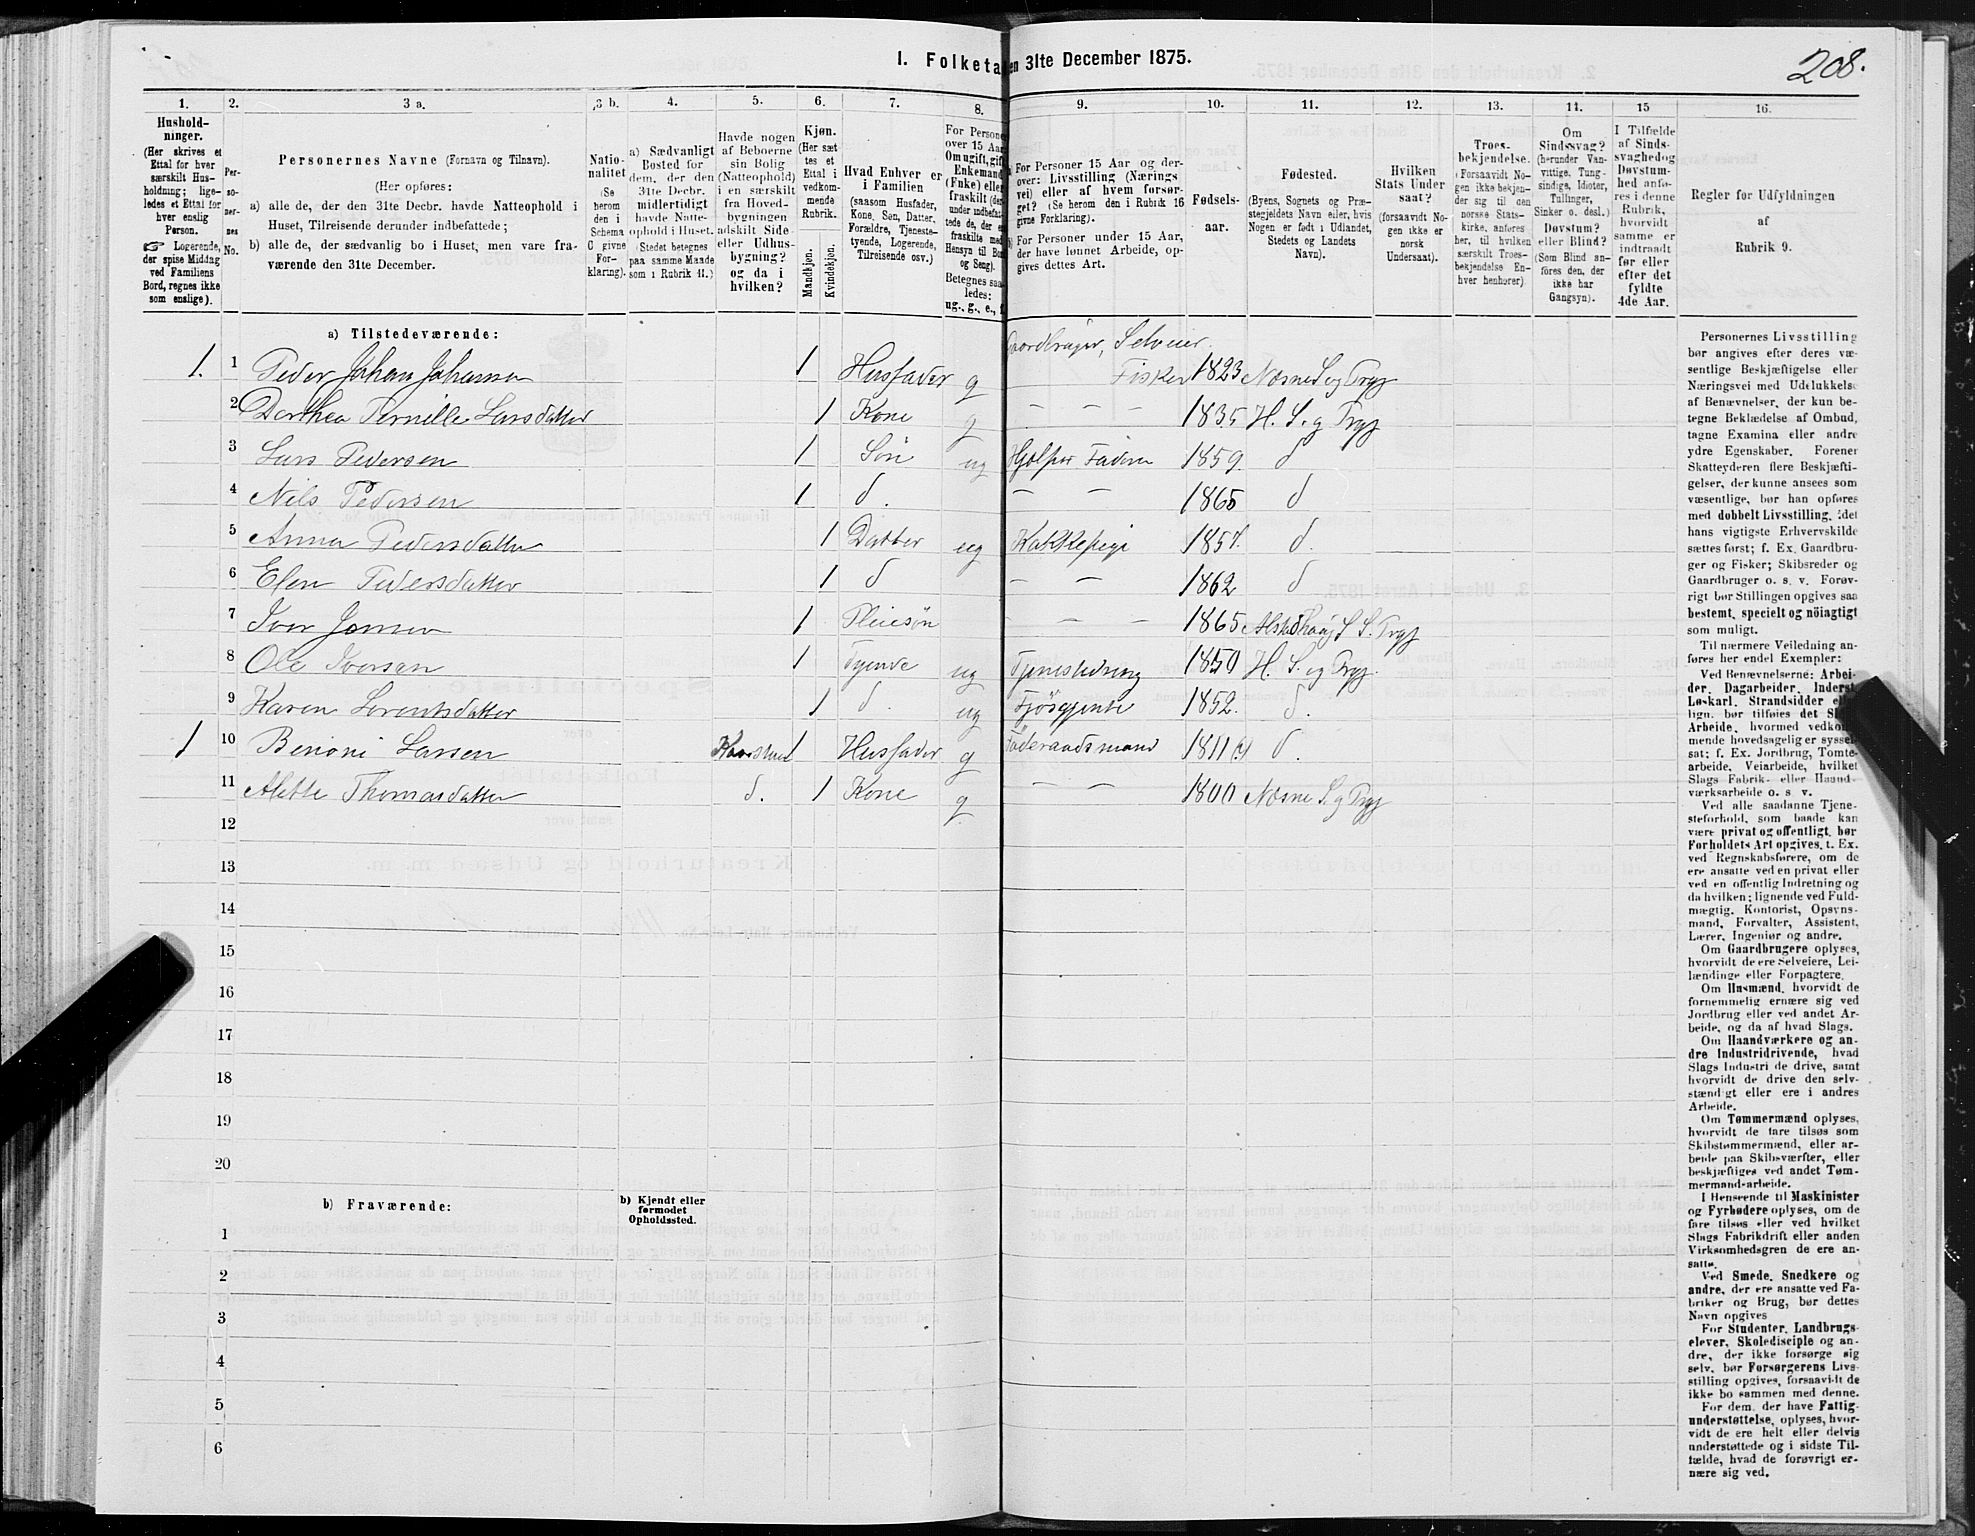 I. Folketa en 31te December 1875.
208.
1.
2.
3 a.
3 b.
4.
5.
6.
7.
8.
9.
10.
11.
12.
13.
14.
15
16.
Hushold-
ninger.
(Her skrives et
Ettal for hver
særskilt Hus-
holdning; lige-
ledes et Ettal for
hver enslig
Person.
☞ Logerende,
der spise Middag
ved Familiens
Bord, regnes ikke
som enslige).
Per-
so-
ner-
nes
No.
Personernes Navne (Fornavn og Tilnavn).
(Her opføres:
a) alle de, der den 31te Decbr. havde Natteophold i
Huset, Tilreisende derunder indbefattede;
b) alle de, der sædvanlig bo i Huset, men vare fra-
værende den 31te December.
Natio-
nalitet
(Se
herom
den i
Schema
C givne
For-
klaring).
a) Sædvanligt
Bosted for
dem, der den
31te Decbr.
midlertidigt
havde Natte-
ophold i Huset.
(Stedet betegnes
paa samme Maade
som i Rubrik 11.)
Havde nogen
af Beboerne
sin Bolig
(Natteophold)
i en særskilt
fra Hoved-
bygningen
adskilt Side-
eller Udhus-
bygning?
og da i
hvilken?
Kjøn.
(Her sæt-
tes et
Ettal i
vedkom-
mende
Rubrik.
Mandkjøn.
Kvindekjøn.
Hvad Enhver er
i Familien
(saasom Husfader,
Kone, Søn, Datter,
Forældre, Tjeneste-
tyende, Logerende,
Tilreisende osv.)
For Persone
over 15 Aar
Om ugift, gift
Enkemand
(Enke) eller
fraskilt (der
under indbefat-
tede de, der e
fraskilte med
Hensyn til Bo
og Seng).
Betegnes saa-
ledes:
ug., g., e., f.
a) For Personer 15 Aar og der-
over: Livsstilling (Nærings
vei) eller af hvem forsør-
get? (Se herom den i Rubrik 16
givne Forklaring).
b) For Personer under 15 Aar,
der have lønnet Arbeide, op-
gives dettes Art.
Fødsels-
aar.
Fødested.
(Byens, Sognets og Præ-
stegjeldets Navn eller, hvis
Nogen er født i Udlandet,
Stedets og Landets
Navn).
Hvilken
Stats Under
saat?
(forsaavidt No-
gen ikke er
norsk
Undersaat).
Troes-
bekjendelse.
(Forsaavidt No-
gen ikke bekjen-
der sig til den
norske Stats-
kirke, anføres
her, til hvilken
særskilt Troes-
bekjendelse En-
hver henhører).
Om
Sindssvag?
(herunder Van-
vittige, Tung-
sindige, Idioter,
Tullinger,
Sinker o. desl.)
Døvstum?
eller Blind?
(Som Blind an-
føres den, der
ikke har
Gangsyn).
I Tilfælde
af Sinds-
svaghed og
Døvstum-
hed anfø-
res i denne
Rubrik,
hvorvidt
samme er
indtraadt
før eller
efter det
fyldte
4de Aar.
Regler for Udfyldningen
af
Rubrik 9.
a) Tilstedeværende:
Gaardbruger, Selveier.
1. 1 Peder Johan Johansen 1 Husfader g Fisker 1823 Næsne S og Prgj
2 Dorthea Pernille Larsdatter 1 Kone g – – – 1835 H. S. og Prgj
3 Lars Pedersen 1 Søn ug Hjelper Faderen 1859. d
4 Nils Pedersen 1 d. – – 1865 d
5 Anna Pedersdatter 1 Datter ug Kokkepige 1857. d.
6 Elen Pedersdatter 1 d – – 1862 d
7 Iver Jonsen 1 Pleiesøn – – – 1865 Alstahaug S. Prgj
8 Ole Iversen 1 Tyende ug Tjenestedreng 1850 H. S. og Prgj.
9 Karen Lorentsdatter 1 d. ug Fjøsgjente 1852. d.
1 10 Benoni Larsen 1 Husfader g Føderaadsmand 1811 d.
11 Alette Thomasdatter d. 1 Kone g – – 1800 Næsne S. og Prgj
12
13
14
15
16
17
18
19
20
b) Fraværende:
b) Kjendt eller
formodet
Opholdssted.
1
2
3
4
5
6
Personernes Livsstilling
bør angives efter deres væ-
sentlige Beskjæftigelse eller
Næringsvei med Udelukkelse
af Benævnelser, der kun be-
tegne Beklædelse af Ombud,
tagne Examina eller andre
ydre Egenskaber. Forener
Skatteyderen flere Beskjæfti-
gelser, der kunne ansees som
væsentlige, bør han opføres
med dobbelt Livsstilling, idet
hans vigtigste Erhvervskilde
sættes først; f. Ex. Gaardbru-
ger og Fisker; Skibsreder og
Gaardbruger o. s. v. Forøv-
rigt bør Stillingen opgives saa
bestemt, specielt og nöiagtigt
som muligt.
Til nærmere Veiledning an-
føres her endel Exempler:
Ved Benævnelserne: Arbei-
der, Dagarbeider, Inderst,
Løskarl, Strandsidder
lign. bør tilføies det
Arbeide, hvormed vedkom-
mende hovedsagelig er syssel-
sat; f. Ex. Jordbrug, Tomte-
arbeide, Veiarbeide, hvilket
Slags Fabrik- eller Haand-
værksarbeide o. s. v.
Ved alle saadanne Tjene-
steforhold, som baade kan
være privat og offentligt, bør
Forholdets Art opgives, t. Ex.
ved Regnskabsførere, om de
ere ansatte ved en privat eller
ved en offentlig Indretning og
da hvilken; lignende ved Fuld-
mægtig, Kontorist, Opsyns-
mand, Forvalter, Assistent,
Lærer, Ingeniør og andre.
Om Gaardbrugere oplyses,
hvorvidt de ere Selveiere, Lei-
lændinge eller Forpagtere.
Om Husmænd, hvorvidt de
fornemmelig ernære sig ved
Jordbrug eller ved andet Ar-
beide, og da af hvad Slags.
Om Haandværkere og an-
dre Industridrivende, hvad
Slags Industri de drive, samt
hvorvidt de drive den selv-
stændigt eller ere i andres
Arbeide.
Om Tømmermænd oplyses,
hvorvidt de fare tilsøs som
Skibstømmermænd, eller ar-
beide paa Skibsværfter, eller
beskjæftiges ved andet Tøm-
mermandsarbeide.
I Henseende til Maskinister
og Fyrbødere oplyses, om de
fare tilsøs eller ved hvilket
Slags Fabrikdrift eller anden
Virksomhedsgren de ere an-
satte.
Ved Smede, Snedkere og
andre, der ere ansatte ved Fa-
briker og Brug, bør dettes
Navn opgives
For Studenter, Landbrugs-
elever, Skoledisciple og an-
dre, der ikke forsørge sig
selv, bør Forsørgerens Livs-
stilling opgives, forsaavidt de
ikke bo sammen med denne.
For dem, der have Fattig-
understøttelse, oplyses, hvor-
vidt de ere helt eller delvis
understøttede og i sidste Til-
fælde, hvad de forøvrigt er-
nære sig ved.